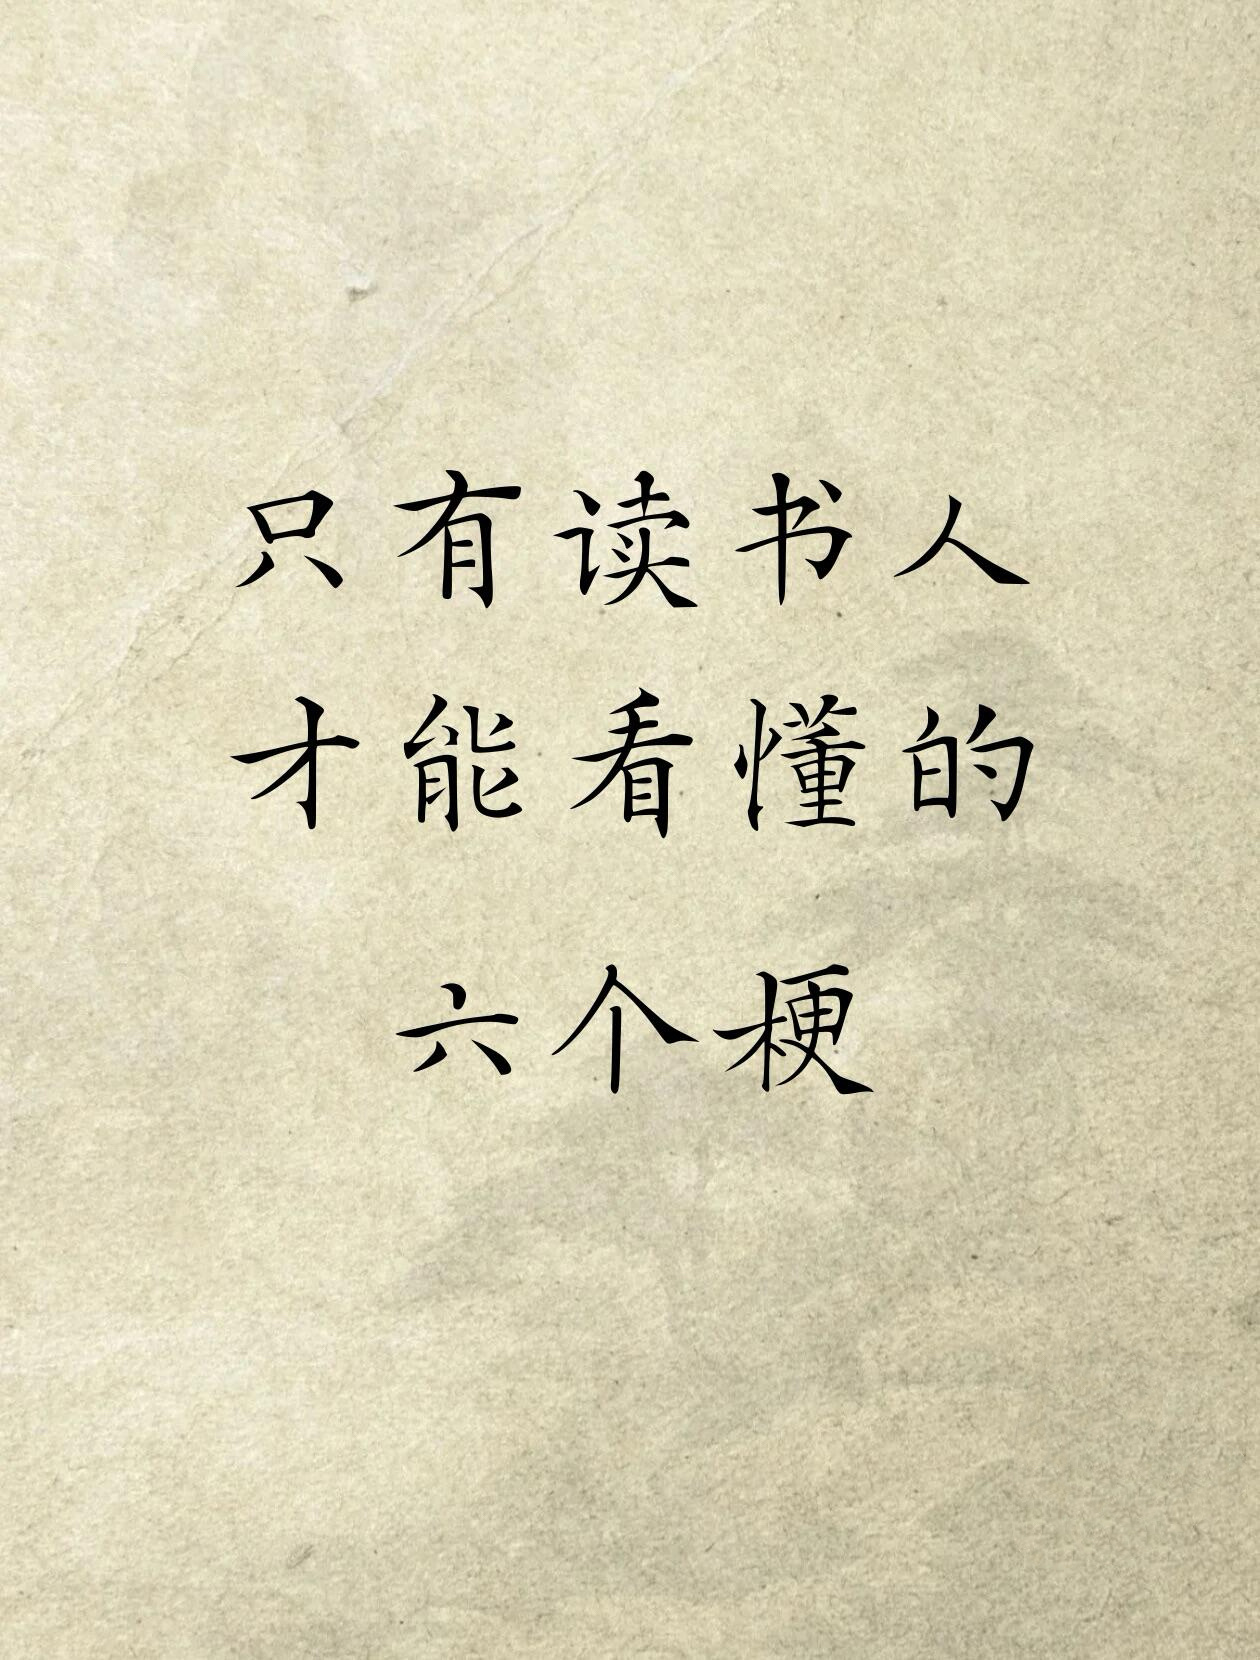 只有读书人
才能看懂的
六个梗